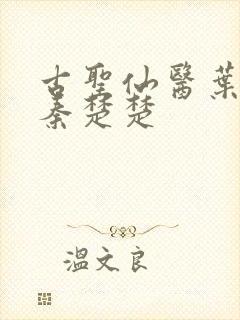 古聖仙醫葉
秦楚楚
溫文良